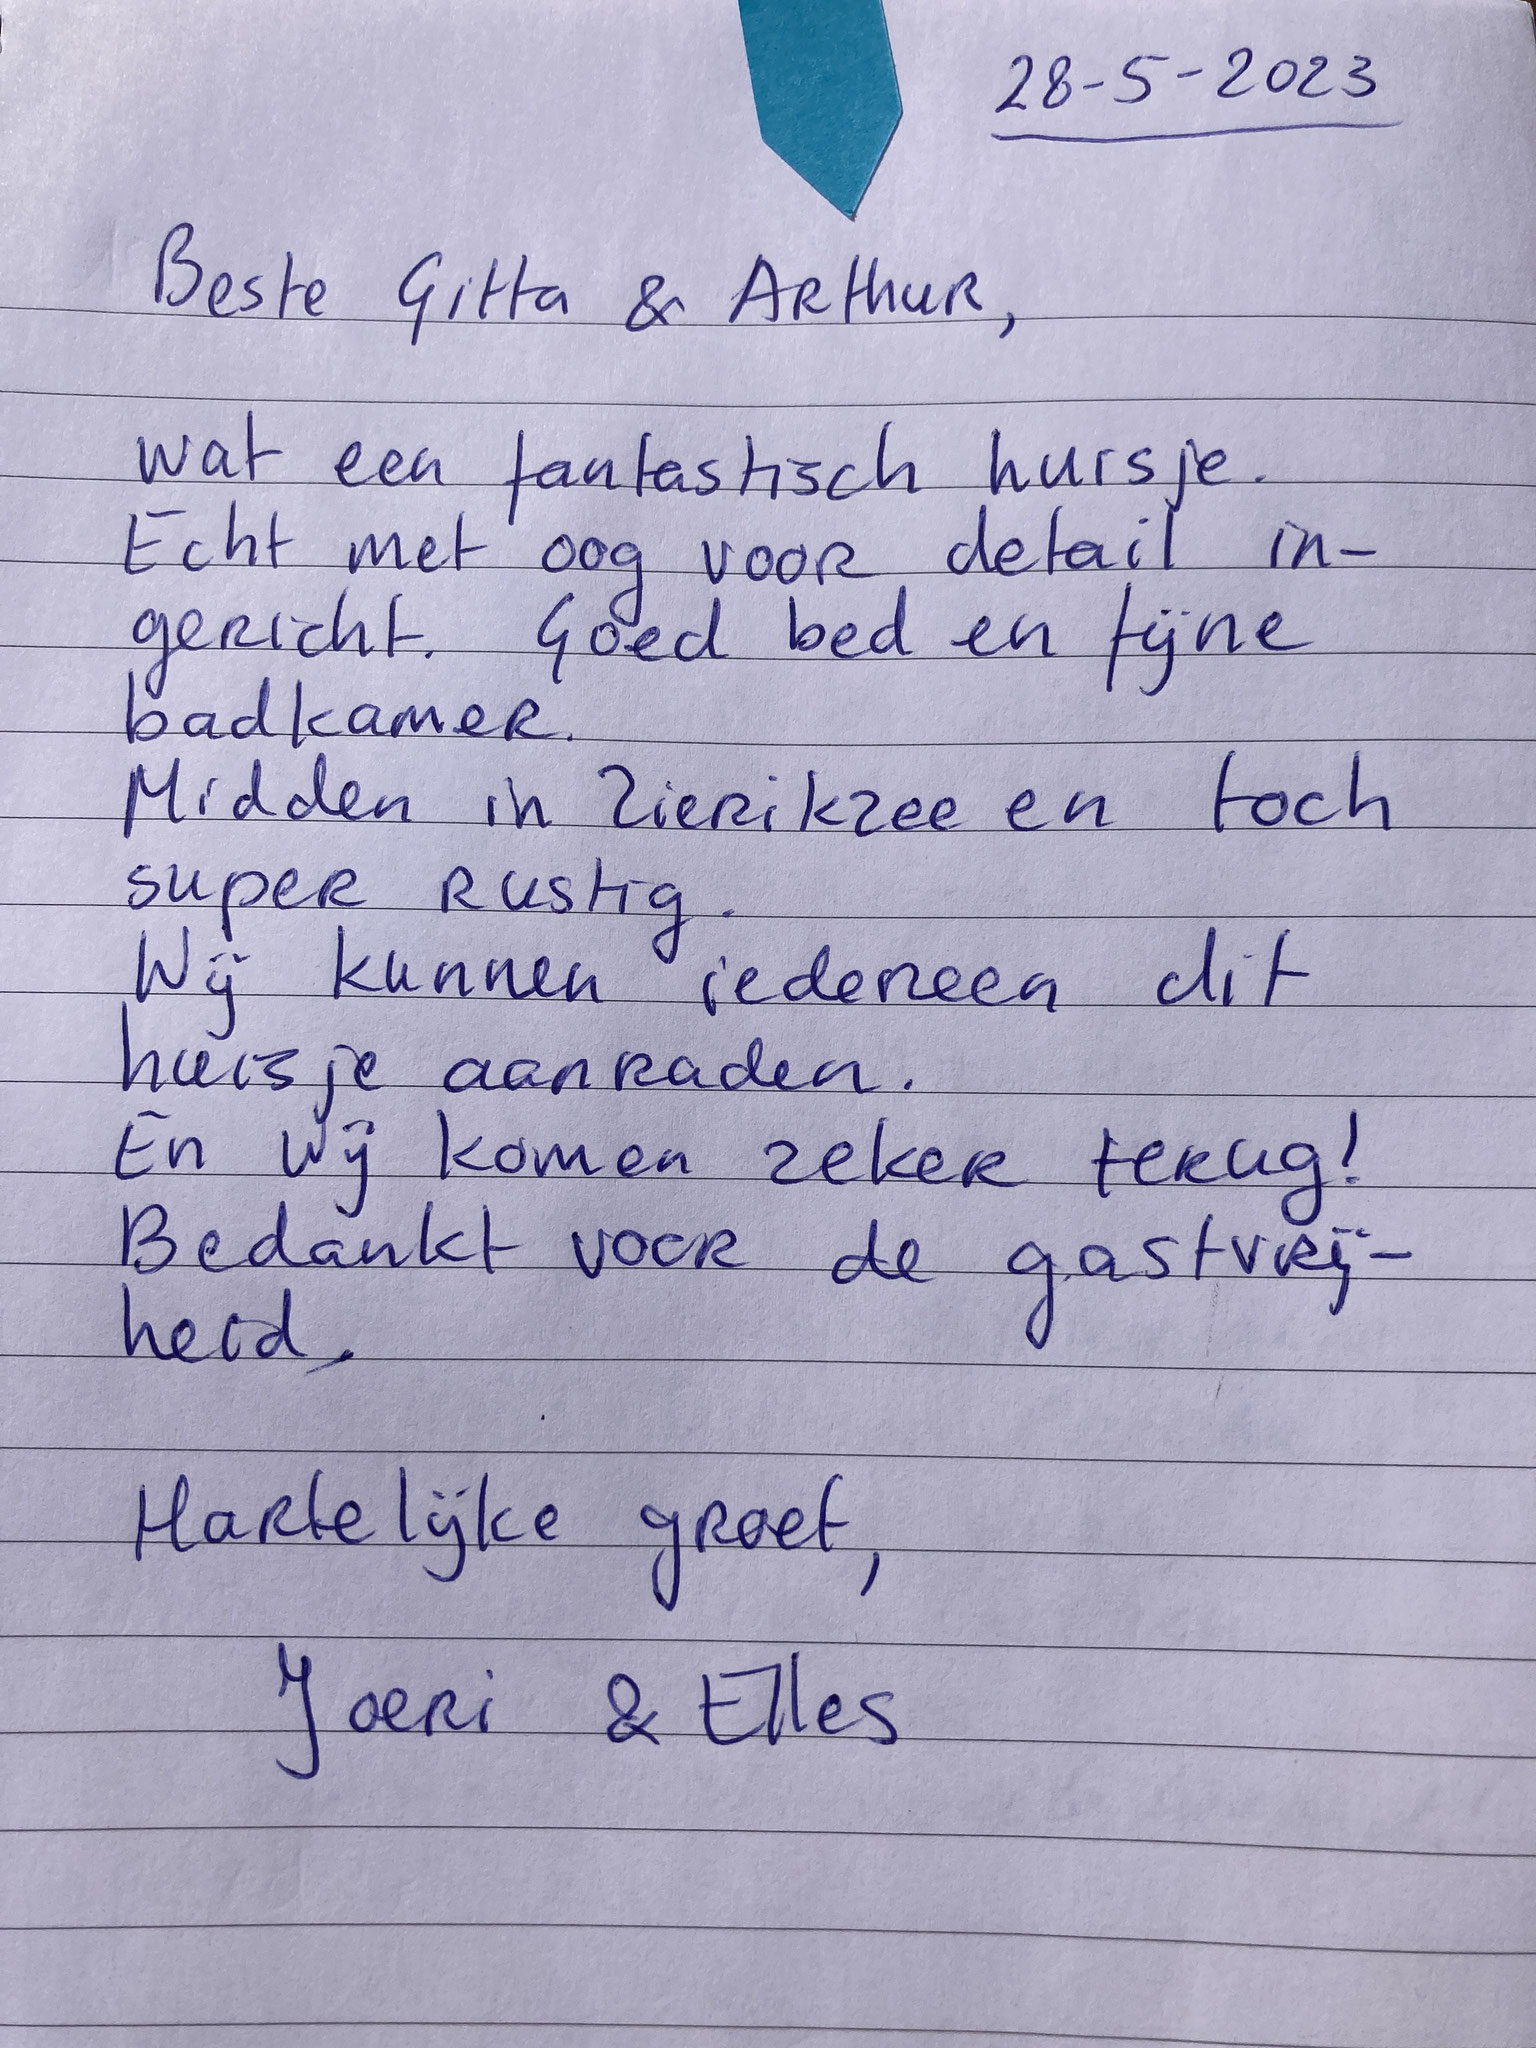 28-5-2023
Beste Gitta & Arthur,
wat een fantastisch huisje.
Echt met oog voor detail in-
gericht. Goed bed en fijne
badkamer.
Midden in Zierikzee en toch
super rustig.
Wij kunnen iedereen dit
huisje aanraden.
En wij komen zeker terug!
Bedankt voor de gastvrij-
heid.
Hartelijke groet,
Joeri & Elles